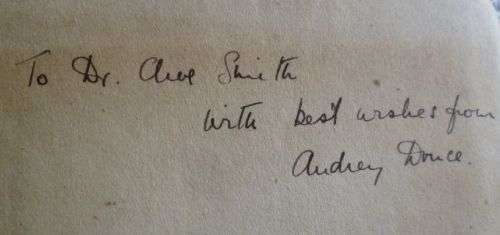 To Dr. Clive Smith
with best wishes from
Audrey Douce.